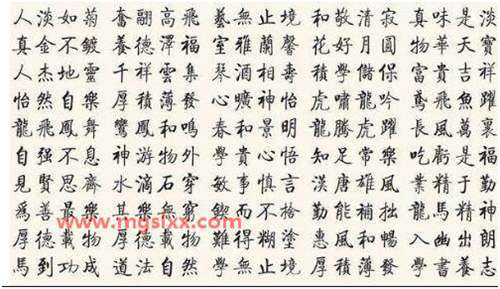 人淡如菊 奮翮高飛 藝無止境 和敬清寂 真味是淡
真金不鍍 養德澤福 室雅蘭馨 花好月圓 物華天寶
人杰地靈 千祥雲集 琴酒相壽 積學儲保 富貴吉祥
怡然自樂 厚積薄發 心曠神怡 虎嘯龍吟 鳶飛魚躍
龍飛鳳舞 鸞鳳和鳴 春和景明 龍騰虎躍 長風萬裏
自强不息 神游物外 學貴心悟 知足常樂 吃虧是福
見賢思齋 水滴石穿 敏事慎言 漢唐雄風 業精于勤
爲善最樂 其樂無窮 鍥而不捨 勤能補拙 龍馬精神
www.mgslxx.com
厚德載物 厚德載物 難得糊塗 惠風和暢 入幽出朗
馬到功成 道法自然 學無止境 厚積薄發 學書養志